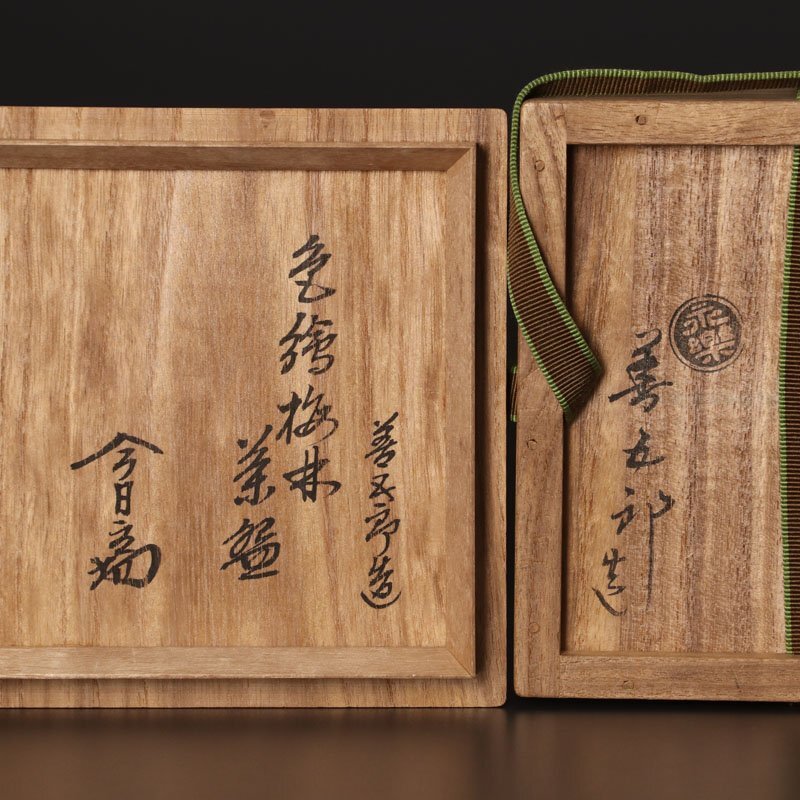 善五郎造
色繪梅林
茶盌
今日庵
永樂
善五郎造